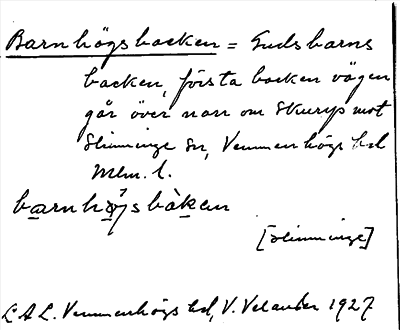 Barnhögsbacken = Gudsbarns
backen, första backen vägen
går över norr om Skurup mot
Slimminge sn, Vemmenhögs hd
Mlm. l.
barnhöysbàken
[Slimminge]
L A L. Vemmenhögs hd, V. Velander 1927